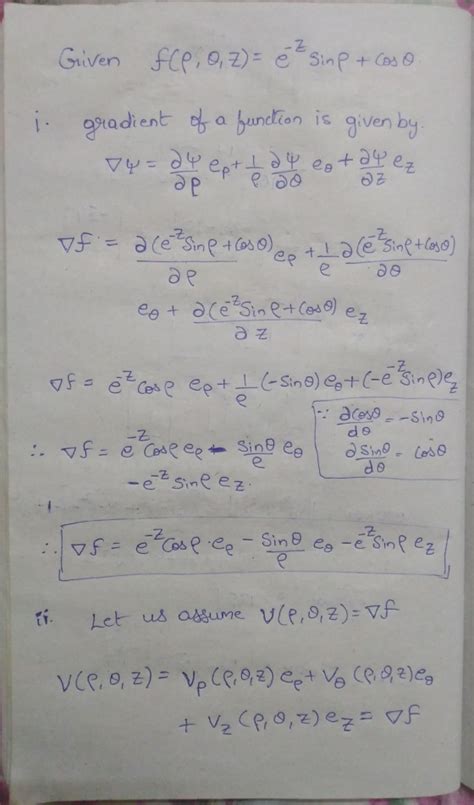 Given f(ρ, θ, z) = e^-z sinρ + cosθ.
i. gradient of a function is given by.
∇ψ = ∂ψ/∂ρ eρ + 1/ρ ∂ψ/∂θ eθ + ∂ψ/∂z ez
∇f = ∂(e^-z sinρ + cosθ)/∂ρ eρ + 1/ρ ∂(e^-z sinρ + cosθ)/∂θ
eθ + ∂(e^-z sinρ + cosθ)/∂z ez
∇f = e^-z cosρ eρ + 1/ρ (-sinθ) eθ + (-e^-z sinρ) ez
∵ ∂cosθ/dθ = -sinθ
∂sinθ/dθ = cosθ
∴ ∇f = e^-z cosρ eρ - sinθ/ρ eθ
-e^-z sinρ ez.
∴ ∇f = e^-z cosρ · eρ - sinθ/ρ eθ - e^-z sinρ ez
ii. Let us assume V(ρ, θ, z) = ∇f
V(ρ, θ, z) = Vρ (ρ, θ, z) eρ + Vθ (ρ, θ, z) eθ
+ Vz (ρ, θ, z) ez = ∇f